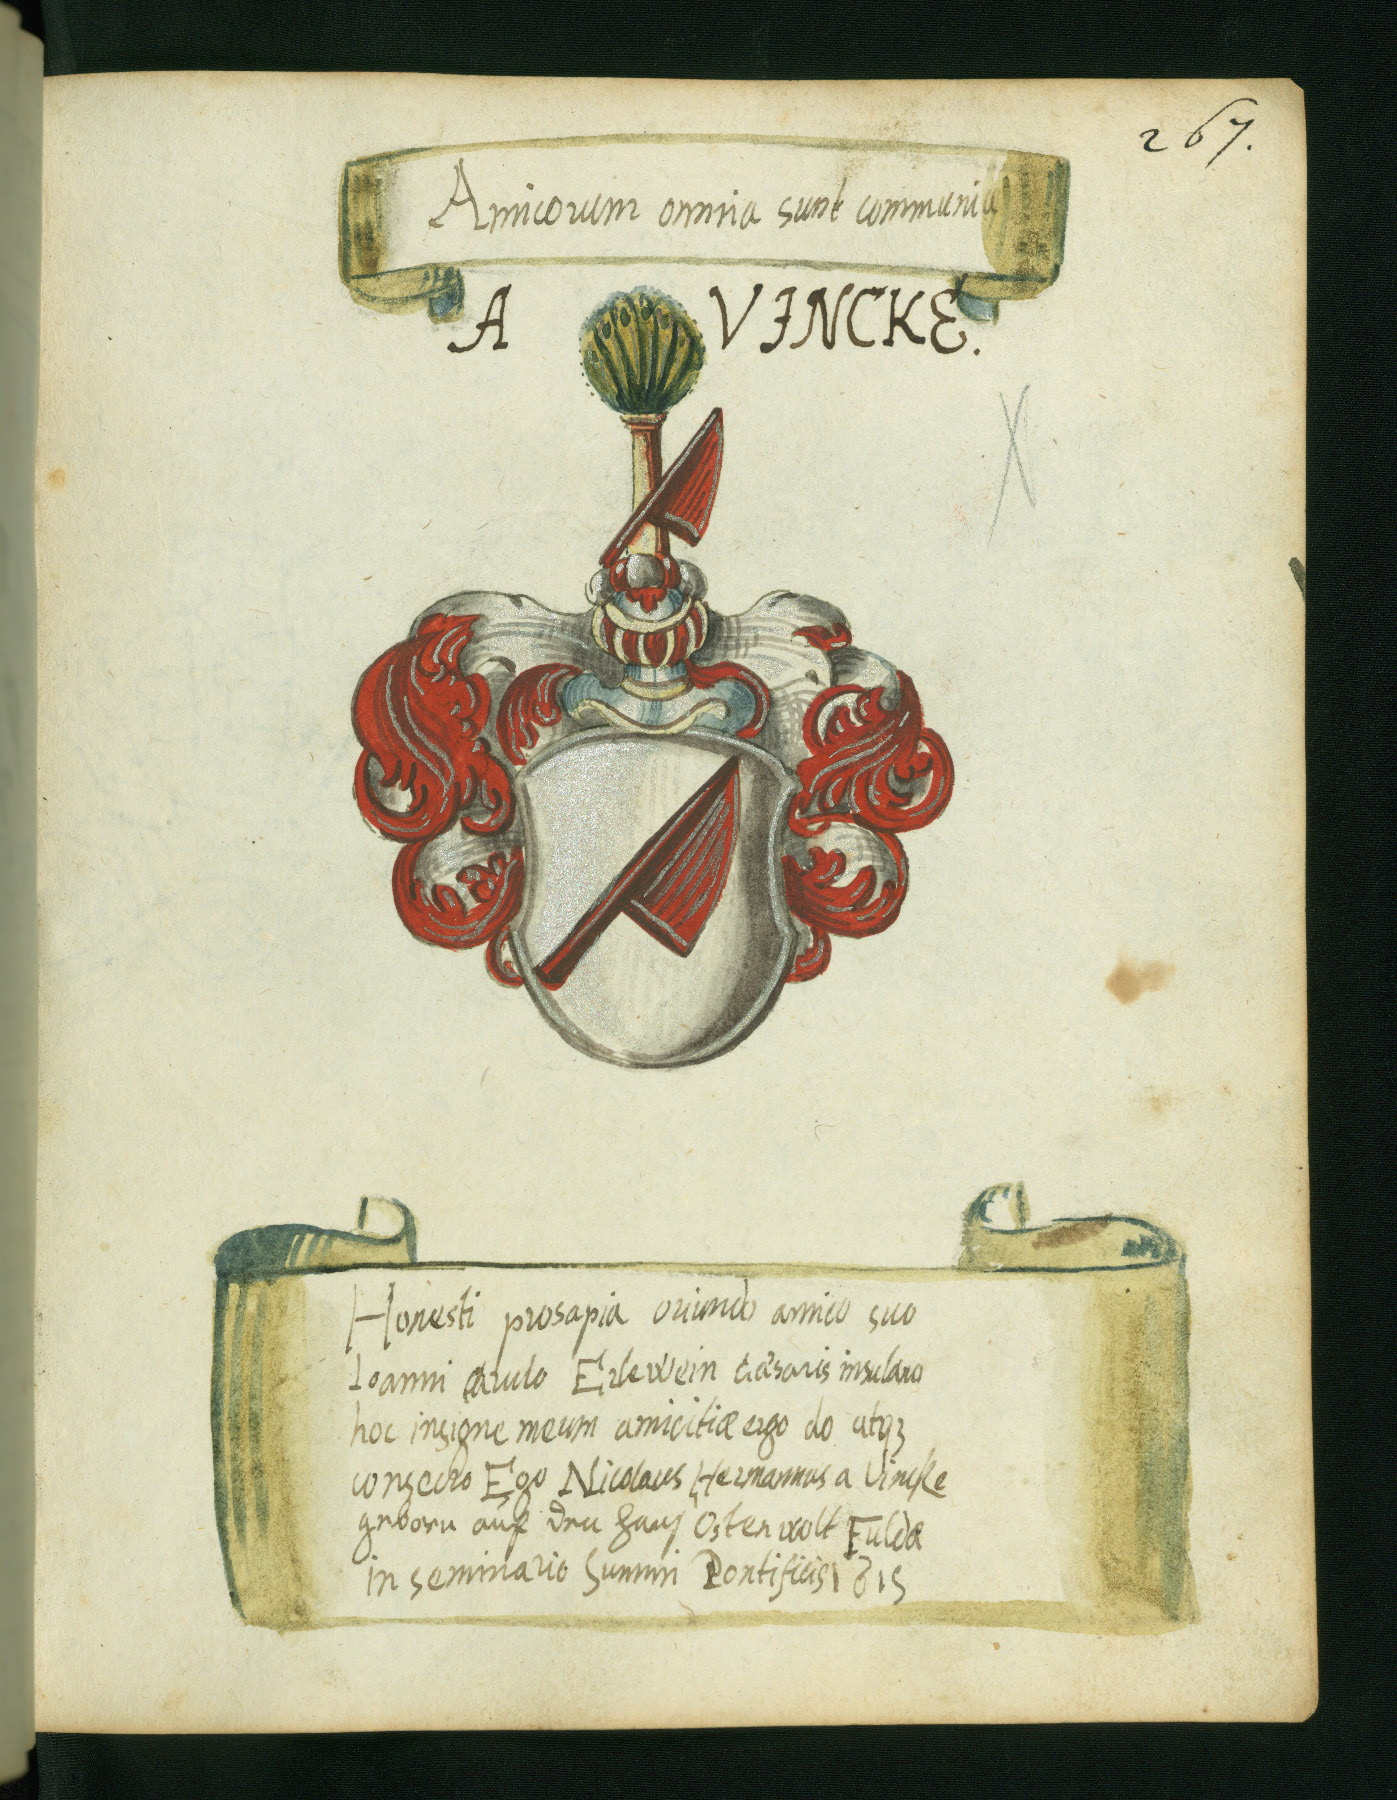 267.
Amicorum omnia sunt communia
A VINCKE.
Honesti prosapia oriundo amico suo
Ioanni Carolo Erlewein Cæsaris insularo
hoc insigne meum amicitiæ ergo do atq3
consecro Ego Nicolaus Hermannus a Vincke
geboren auf den Hauſ Ostenwolt Fuldæ
in seminario Summi Pontificis 1615